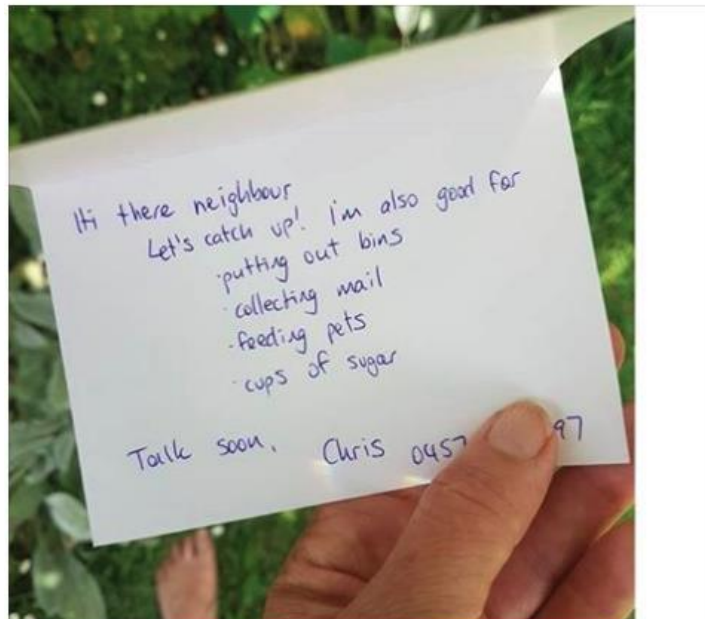 Hi there neighbour
Let's catch up! i'm also good for
·putting out bins
·collecting mail
·feeding pets
·cups of sugar
Talk soon, Chris 0457 97